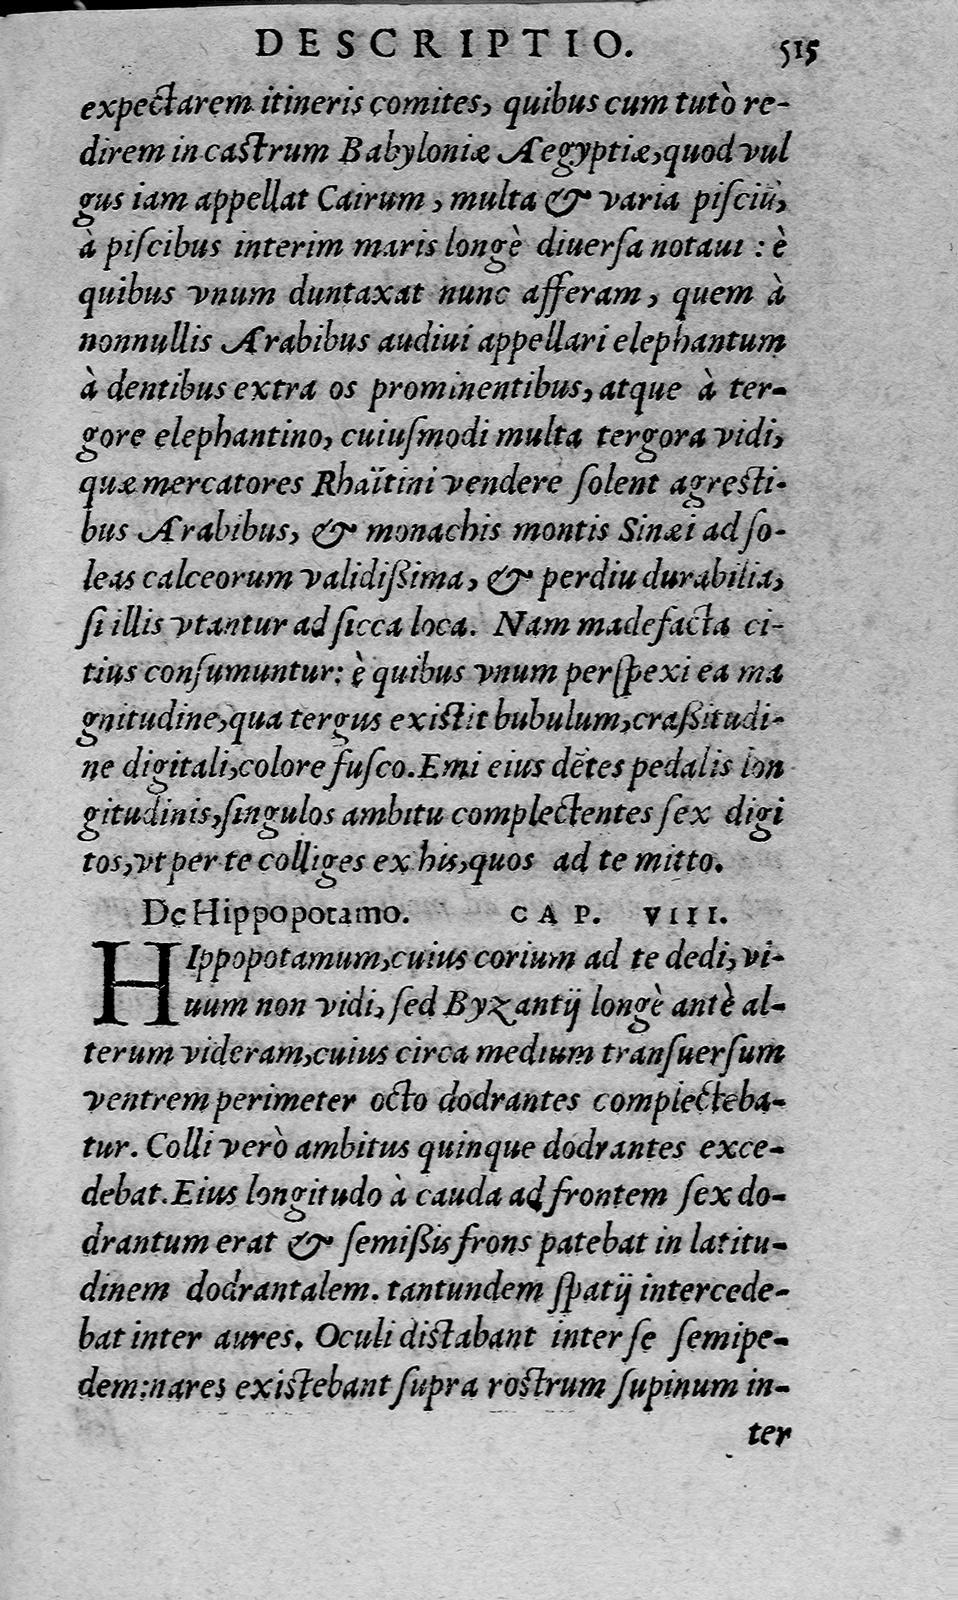 DESCRIPTIO. 515
expectarem itineris comites, quibus cum tutò re-
direm in castrum Babyloniæ Aegyptiæ, quod vul
gus iam appellat Cairum, multa & varia pisciū,
à piscibus interim maris longè diuersa notaui : è
quibus vnum duntaxat nunc afferam, quem à
nonnullis Arabibus audiui appellari elephantum
à dentibus extra os prominentibus, atque à ter-
gore elephantino, cuiusmodi multa tergora vidi,
quæ mercatores Rhaïtini vendere solent agresti-
bus Arabibus, & monachis montis Sinæi ad so-
leas calceorum validißima, & perdiu durabilia,
si illis vtantur ad sicca loca. Nam madefacta ci-
tius consumuntur: è quibus vnum perspexi ea ma
gnitudine, qua tergus existit bubulum, craßitudi-
ne digitali, colore fusco. Emi eius dētes pedalis lon
gitudinis, singulos ambitu complectentes sex digi
tos, vt per te colliges ex his, quos ad te mitto.
De Hippopotamo. CAP. VIII.
HIppopotamum, cuius corium ad te dedi, vi-
uum non vidi, sed Byzantij longè antè al-
terum videram, cuius circa medium transuersum
ventrem perimeter octo dodrantes complecteba-
tur. Colli verò ambitus quinque dodrantes exce-
debat. Eius longitudo à cauda ad frontem sex do-
drantum erat & semißis frons patebat in latitu-
dinem dodrantalem. tantundem spatij intercede-
bat inter aures. Oculi distabant inter se semipe-
dem: nares existebant supra rostrum supinum in-
ter